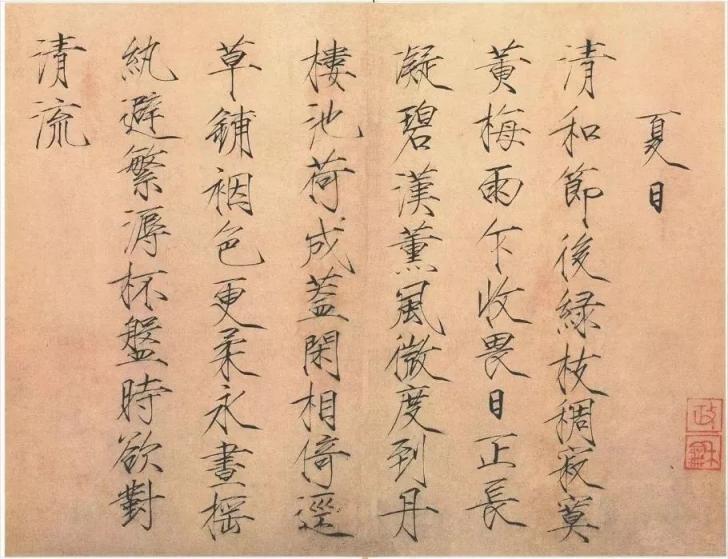 夏日
清和節後綠枝稠寂寞
黃梅雨乍收畏日正長
凝碧漢薰風微度到丹
樓池荷成蓋閑相倚逕
草鋪裀色更柔永晝搖
紈避繁溽杯盤時欲對
清流
政龢